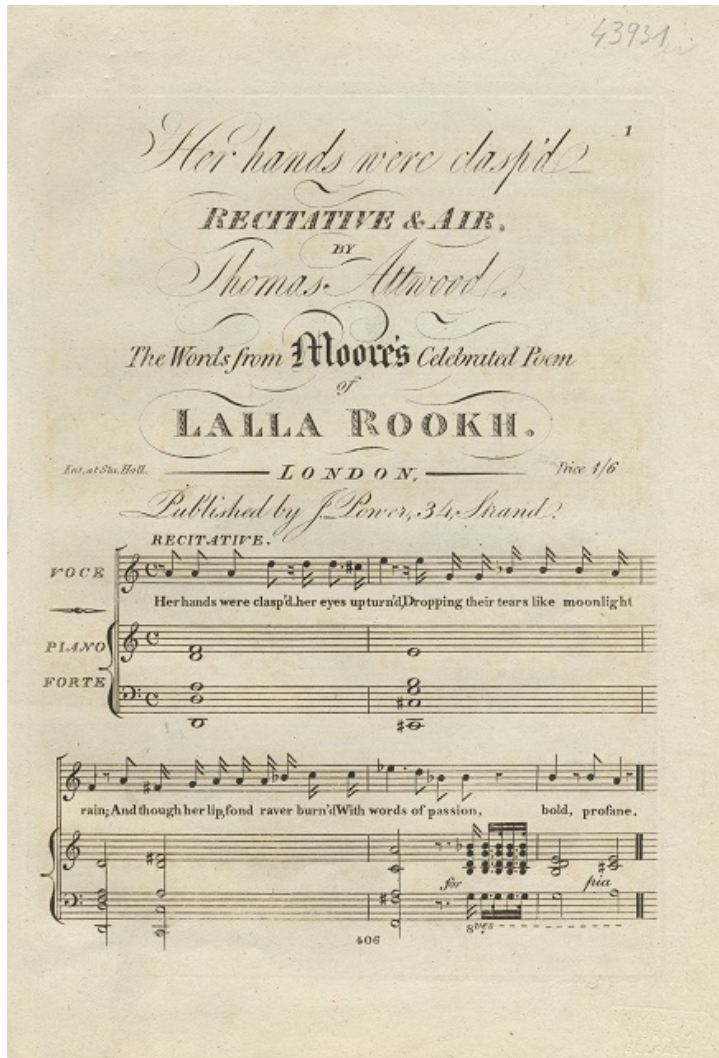 43931
1
Her hands were clasp'd
RECITATIVE & AIR.
BY
Thomas Attwood.
The Words from Moore's Celebrated Poem
of
LALLA ROOKH.
Ent. at Sta. Hall. LONDON, Price 1/6
Published by J. Power, 34, Strand.
RECITATIVE.
VOCE
Her hands were clasp'd her eyes upturn'd, Dropping their tears like moonlight
PIANO
FORTE
rain; And though her lip, fond raver burn'd With words of passion, bold, profane.
for pia
8ves
406